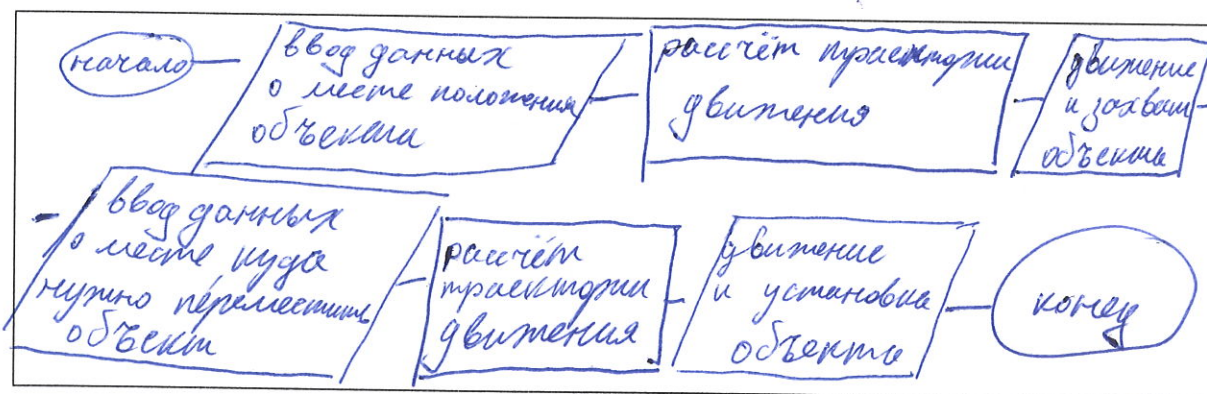 начало
ввод данных
о месте положения
объекта
рассчёт траектории
движения
движение
и захват
объекта
ввод данных
о месте куда
нужно переместить
объект
рассчёт
траектории
движения
движение
и установка
объекта
конец